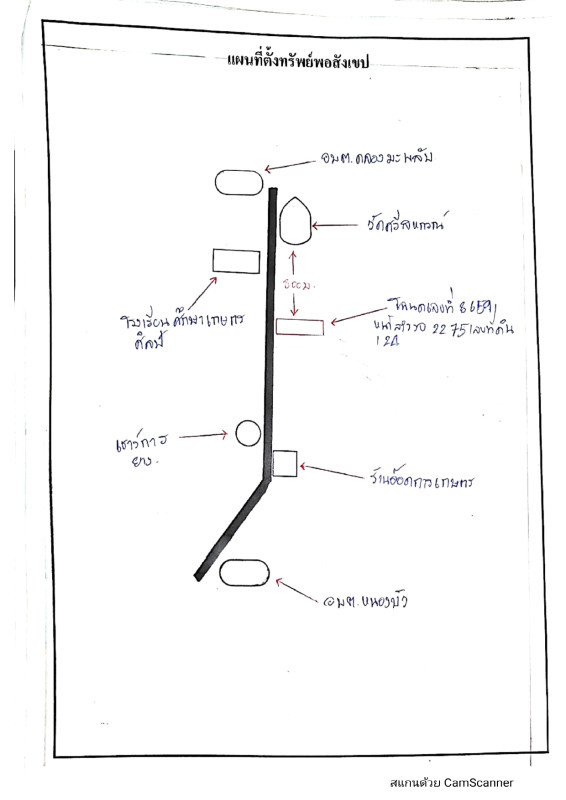 แผนที่ตั้งทรัพย์พอสังเขป
อบต.คลองมะพลับ
วัดศรีสหกรณ์
500ม.
โรงเรียนศึกษาเกษตร
ศิลป์
โฉนดเลขที่
หน้าสำรวจ 2275 เลขที่ดิน
เชาว์การ
ยาง.
ร้านอ๊อดการเกษตร
อบต.หนองบัว
สแกนด้วย CamScanner